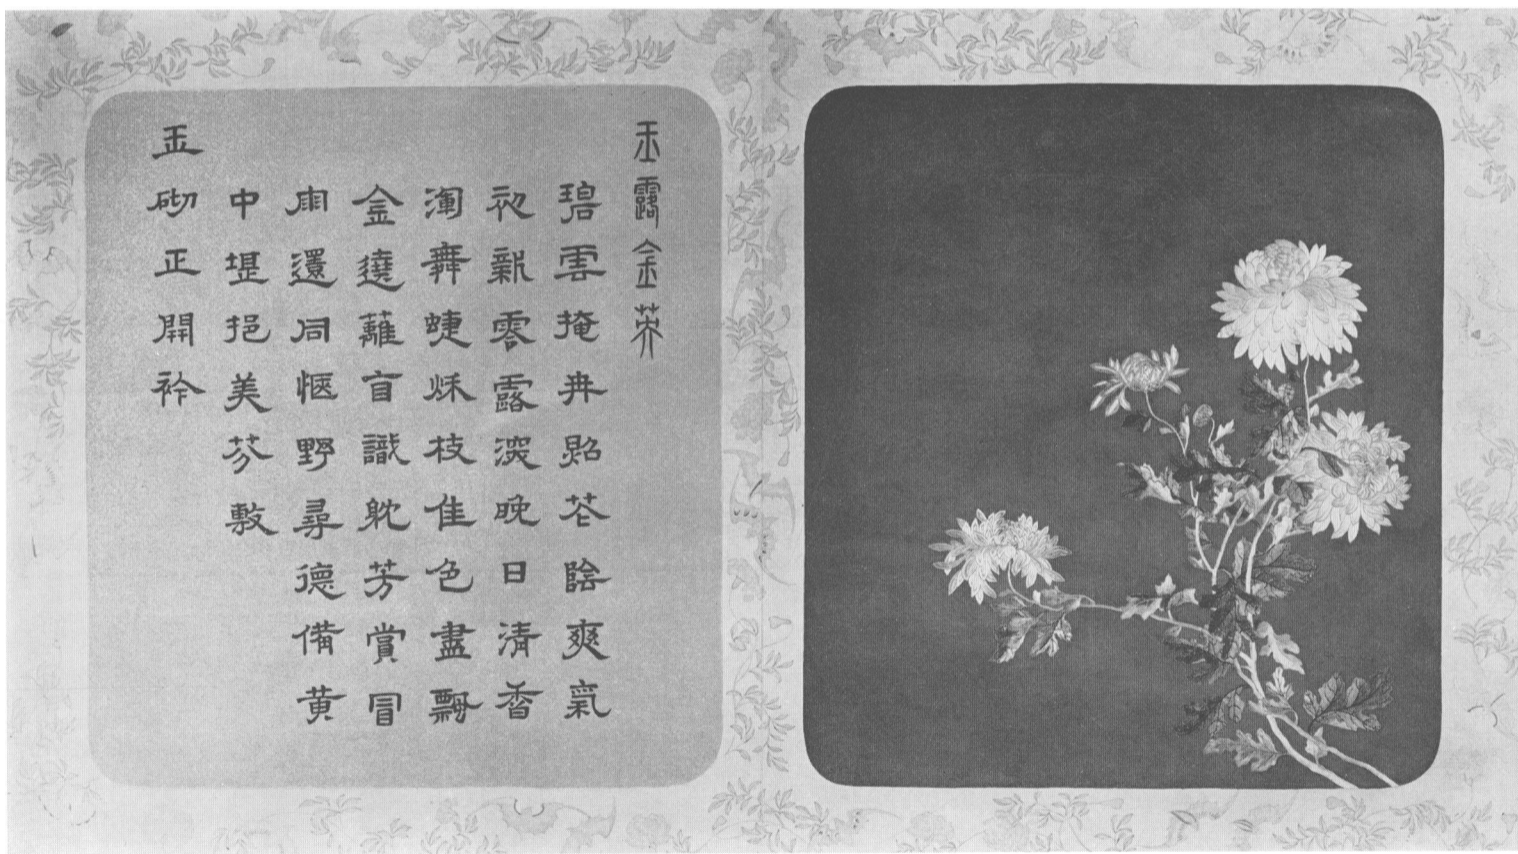 玉露金英
碧雲掩冉花陰爽氣
初新零露深晚日清香
瀾舞蜨秋枝佳色盡飄
金遶蘺識躭芳賞冒
雨還同愜野尋德備黃
中堪挹美芬敷
玉砌正開衿